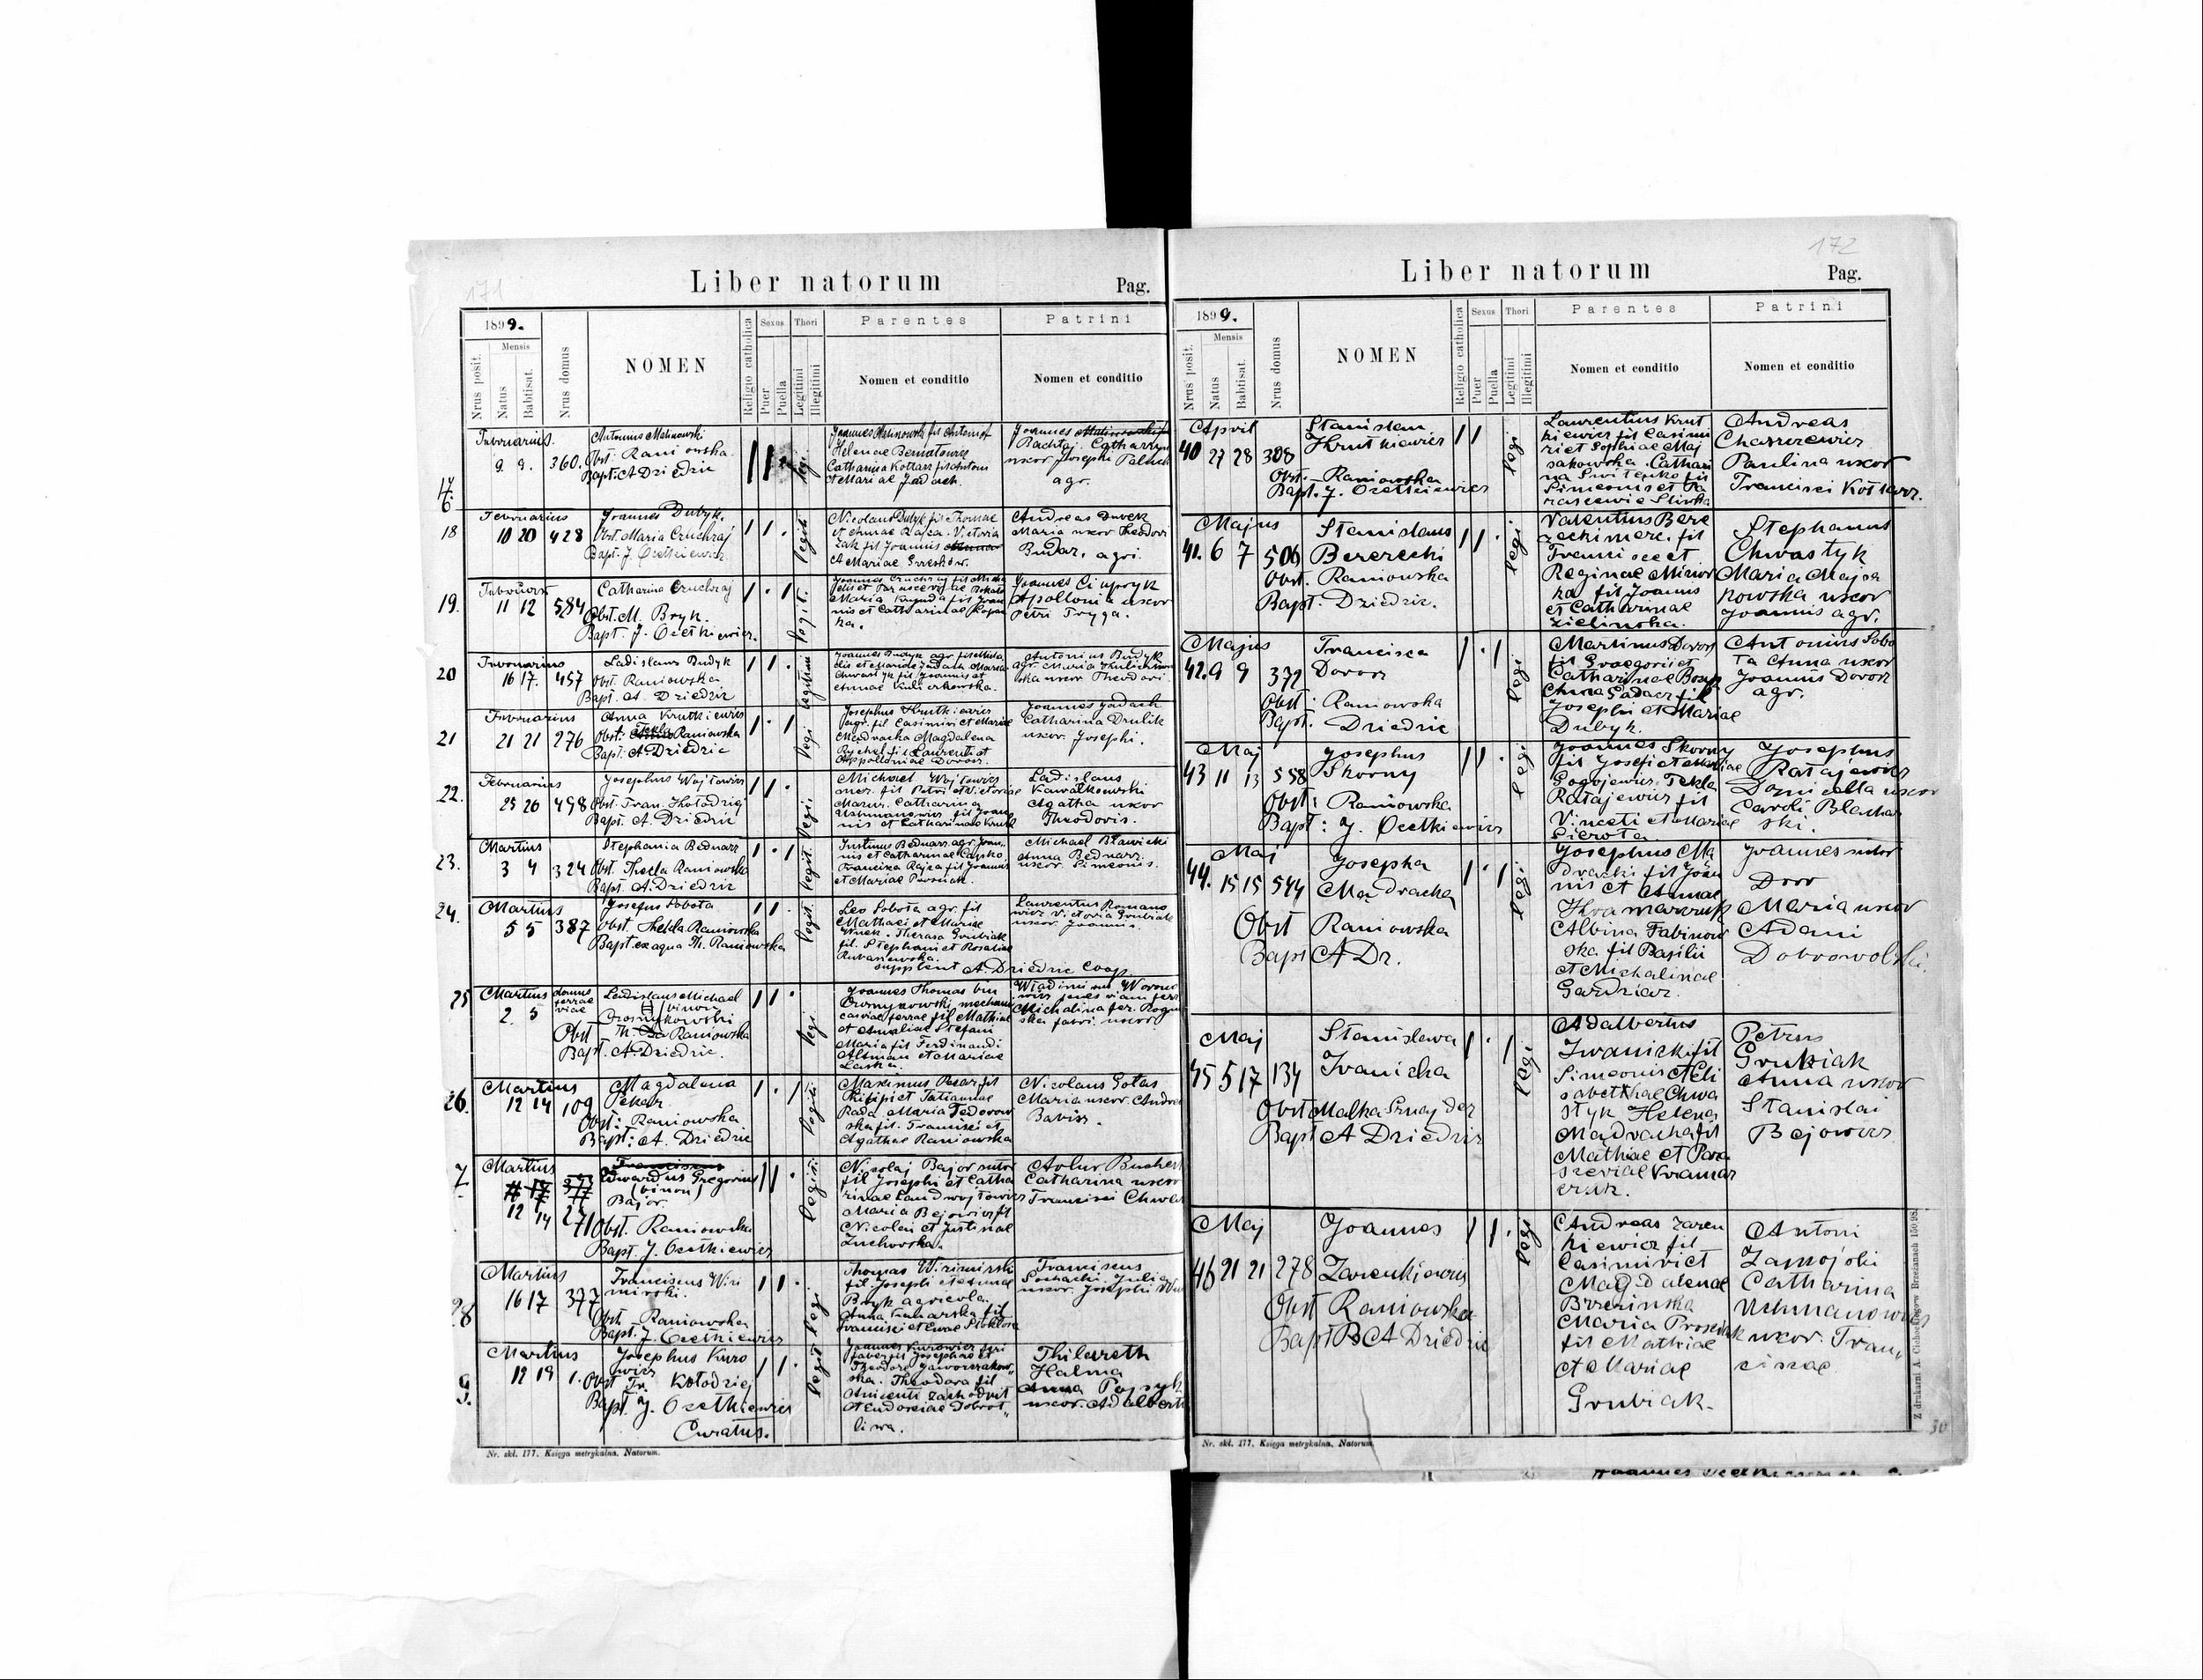 171
Liber natorum
Pag.
1899.
Mensis
Nrus posit.
Natus
Babtisat.
Nrus domus
NOMEN
Religio catholica
Sexus
Puer
Puella
Thori
Legitimi
Illegitimi
Parentes
Nomen et conditio
Patrini
Nomen et conditio
Antonius Malinowski
9 9. 360. Obst. Raniowska
Bapt. A Dziedzic
Joannes Malinowski fil Antoni et
Helenae
Catharina Kotlarz fil Antoni
et Mariae Jadach.
Joannes
Catharina
uxor Josephi
agr.
18
Februarius
10 20 428
Joannes Dubyk.
Obst Maria Cruchraj
Bapt. J. Ocetkiewicz
Legiti
Nicolaus Dubyk fil Thomae
et Annae Rajca. Victoria
Zak fil Joannis
et Mariae
Andreas Durek
Maria uxor Theodori
Budar, agri.
19.
11 12 584
Catharina Cruchraj
Obst. M. Bryk.
Bapt. J. Ocetkiewicz.
Legit.
Joannes Cruchraj fil Micha
Maria fil Joan
nis et Catharinae Kopa
ka.
Joannes Ciupryk
Apollonia uxor
Petri Fryga.
20
16 17. 457
Ladislaus Budyk
Obst. Raniowska
Bapt. A. Dziedzic
Legitimi
Joannes Budyk agr. fil Micha
Chwastyk fil Joannis et
Annae
Antonius Budyk
agr. Maria
uxor Theodori
21
21 21 276
Anna Krutkiewicz
Obst: Tekla Raniowska
Bapt: A Dziedzic
Legi
Josephus Krutkiewicz
agr. fil Casimiri et Mariae
Mądracka Magdalena
Rychel fil Laurenti et
Appolloniae Dorosz.
Joannes Jadach
Catharina Drulik
uxor Josephi.
22.
Februarius
25 26 498
Josephus Wojtowicz
Obst. Fran. Kołodziej
Bapt. A. Dziedzic
Legiti
Michael Wojtowicz
mer. fil Petri et Victoriae
Mazur. Catharina
Uchmanowicz fil Joan
nis et Catharinae Kruk
Ladislaus
Kawalkowski
Agatha uxor
Theodoris.
23.
Martius
3 4 324
Stephania Bednarz
Obst. Thecla Raniowska
Bapt. A. Dziedzic
Legit
Justinus Bednarz agr Joan
nis et Catharinae
Francisca Rajca fil Joannis
et Mariae
Michael Bławicki
Anna Bednarz
uxor Simeonis.
24.
Martius
5 5 387
Josefus Sobota
Obst. Thekla Raniowska
Bapt. ex aqua Th. Raniowska
Legit.
Leo Sobota agr. fil
Mathaei et Mariae
Wnek. Theresa Grubiak
fil. Stephani et Rosaliae
supplevit A. Dziedzic Coop.
Laurentus Romano
wicz Victoria Grubiak
uxor Joannis.
25
Martius
2. 5
domus
ferrae
viae
Ladislaus Michael
binom
Obst Th. Raniowska
Bapt. A. Dziedzic.
Legi
Joannes Thomas bin
fil Mathiae
et Amaliae Stefani
Maria fil Ferdinandi
Altman et Mariae
Laska.
Michalina
uxor
26.
Martius
12 14 109
Magdalena
Pekar
Obst: Raniowska
Bapt: A. Dziedzic
Legiti
Maximus Pekar fil
Philipi et Tatiannae
Rada. Maria Fedorow
ska fil. Francisci et
Agathae Raniowska
Nicolaus Gołas
Maria uxor Andrei
Babisz.
7
Martius
12 14 271
Edwardus Gregorius
(binom)
Bajor
Obst. Raniowska
Bapt. J. Ocetkiewicz
Legiti
Nicolaj Bajor sutor
fil Josephi et Catha
rinae Landwojtowicz
Maria Bejowicz fil
Nicolai et Justinae
Zuchowska.
Artur
Catharina uxor
Francisci
28
Martius
16 17 377
Franciscus Wizi
mirski.
Obst. Raniowska
Bapt. J. Ocetkiewicz
Legi
Thomas Wizimirski
fil Josephi et Annae
Bryk agricola.
Anna Kucharska fil
Francisci et Evae Stokłosa
Franciscus
Sochacki, Julia
uxor Josephi
9.
Martius
12 19 1.
Josephus Kuro
wicz
Obst Fr. Kołodziej
Bapt. J. Ocetkiewicz
Curatus.
Legit
Joannes Kurowicz
faber fil Josephae et
Theodora fil
et Eudorciae Dobrot
liwa.
Thilareth
Halma
Anna
uxor Adalberti
Nr. skł. 177. Księga metrykalna. Natorum.
172
Liber natorum
Pag.
1899.
Mensis
Nrus posit.
Natus
Babtisat.
Nrus domus
NOMEN
Religio catholica
Sexus
Puer
Puella
Thori
Legitimi
Illegitimi
Parentes
Nomen et conditio
Patrini
Nomen et conditio
April
40 27 28 308
Stanislau
Krutkiewicz
Obst. Raniowska
Bapt. J. Ocetkiewicz
Legi
Laurentius Krut
kiewicz fil Casimi
ri et Sophiae Maj
sakowska. Cathari
na Switenko fil
Simeonis et Pa
rascewie Sliwka
Andreas
Chazurewicz
Paulina uxor
Francisci Kotlarz.
Majus
41. 6 7 506
Stanislaus
Berezecki
Obst. Raniowska
Bapt. Dziedzic.
Legi
Valentius Bere
zecki merc. fil
Francisci et
Reginae Mizior
ka fil Joannis
et Catharinae
Zielinska.
Stephanus
Chwastyk
Maria Majsa
kowska uxor
Joannis agr.
Majus
42. 9 9 372
Francisca
Dorosz
Obst: Raniowska
Bapt: Dziedzic
Legi
Martinus Dorosz
fil Graegorii et
Catharinae
Anna Sadacz fil
Josephi et Mariae
Dubyk.
Antonius Sobo
ta Anna uxor
Joannis Dorosz
agr.
Maj
43 11 13 558
Josephus
Skorny
Obst: Raniowska
Bapt: J. Ocetkiewicz
Legi
Joannes Skorny
fil Josefi et Mariae
Gogojewicz. Tekla
Ratajewicz fil
Vincenti et Mariae
Sierota
Josephus
Ratajewicz
Domicella uxor
Caroli Blachar
ski.
Maj
44. 15 15 544
Josepha
Mądracka
Obst Raniowska
Bapt A Dz.
Legi
Josephus Mą
dracki fil Joan
nis et Annae
Albina Fabinow
ska fil Basilii
et Michalinae
Gardziar.
Joannes sutor
Dorr
Maria uxor
Adami
Dobrowolski.
Maj
45 5 17 134
Stanislawa
Iwanicka
Obst Malka Sznayder
Bapt A Dziedzic
Legi
Adalbertus
Iwanicki fil
Simeonis et Eli
sabethae Chwa
styk Helena
Mądracka fil
Mathiae et Para
szeviae Kramar
czuk.
Petrus
Grubiak
Anna uxor
Stanislai
Bejowicz
Maj
46 21 21 278
Joannes
Zarenkiewicz
Obst Raniowska
Bapt B A Dziedzic
Legi
Andreas Zaren
kiewicz fil
Casimiri et
Magdalenae
Brzezinska
Maria Prosciak
fil Mathiae
et Mariae
Grubiak.
Antoni
Zamojski
Catharina
Uchmanowicz
uxor. Fran
ciscae
Z drukarni A. Ciahociłogo w Brzeżanach 150 98.
30
Nr. skł. 177. Księga metrykalna. Natorum